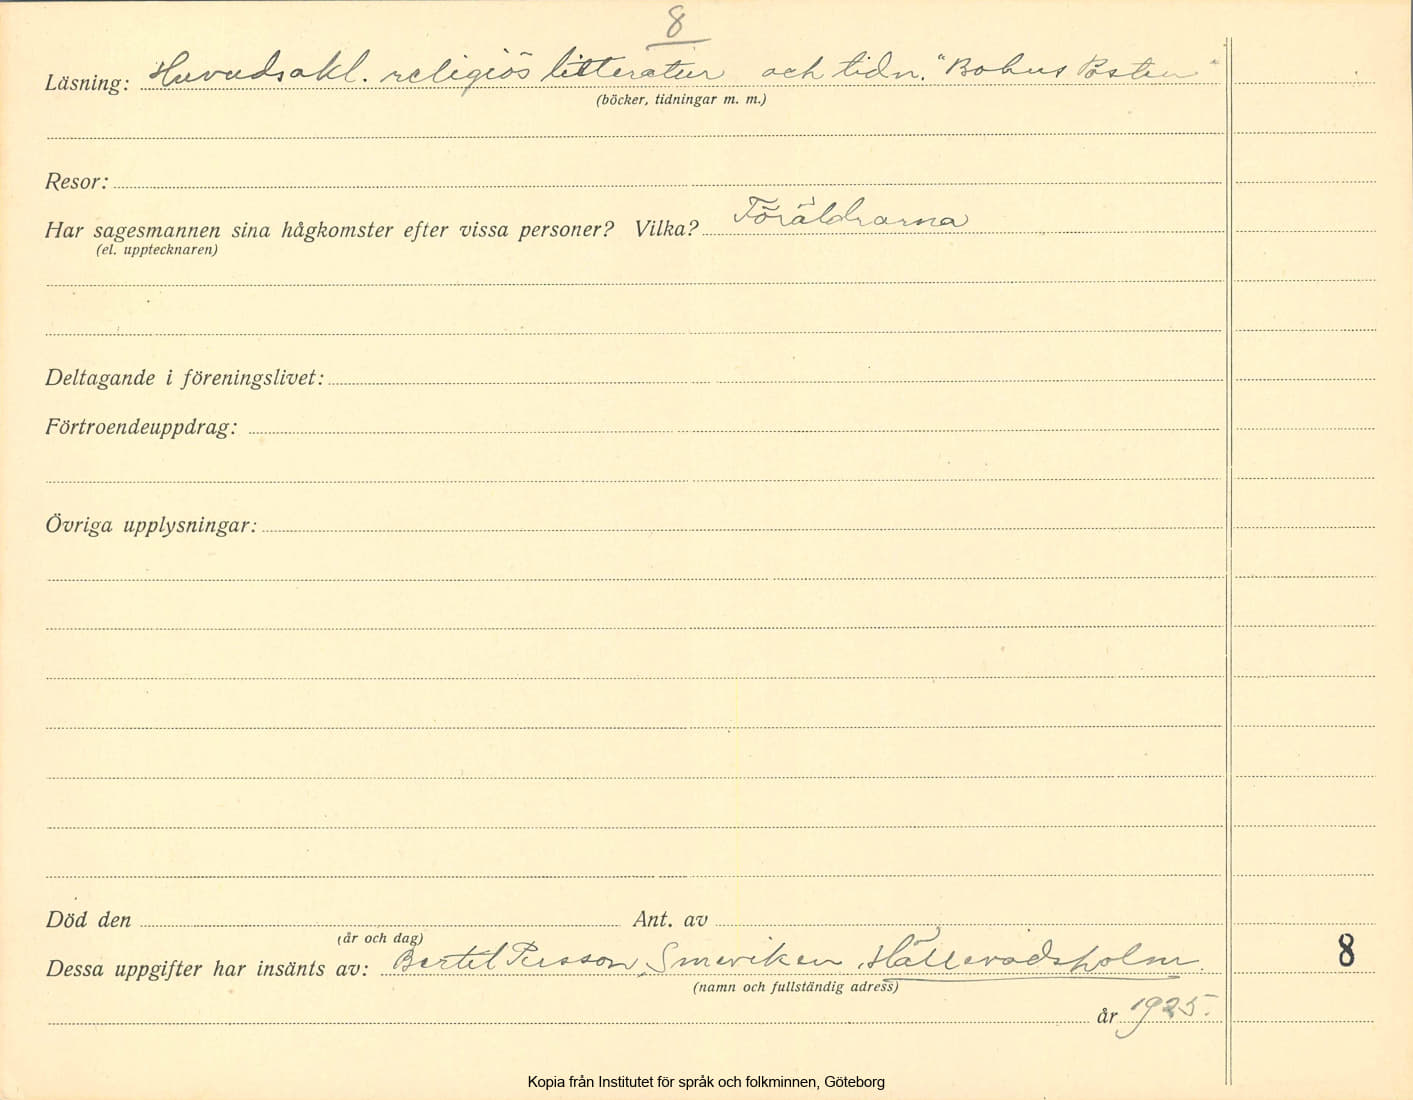 8
Läsning: Huvudsakl. religiös litteratur och tidn. "Bohus Posten"
(böcker, tidningar m. m.)
Resor:
Har sagesmannen sina hågkomster efter vissa personer? Vilka? Föräldrarna
(el. upptecknaren)
Deltagande i föreningslivet:
Förtroendeuppdrag:
Övriga upplysningar:
Död den Ant. av
(år och dag)
Dessa uppgifter har insänts av: Bertil Persson, Smeviken, Hällevadsholm. 8
(namn och fullständig adress)
år 1925.
Kopia från Institutet för språk och folkminnen, Göteborg